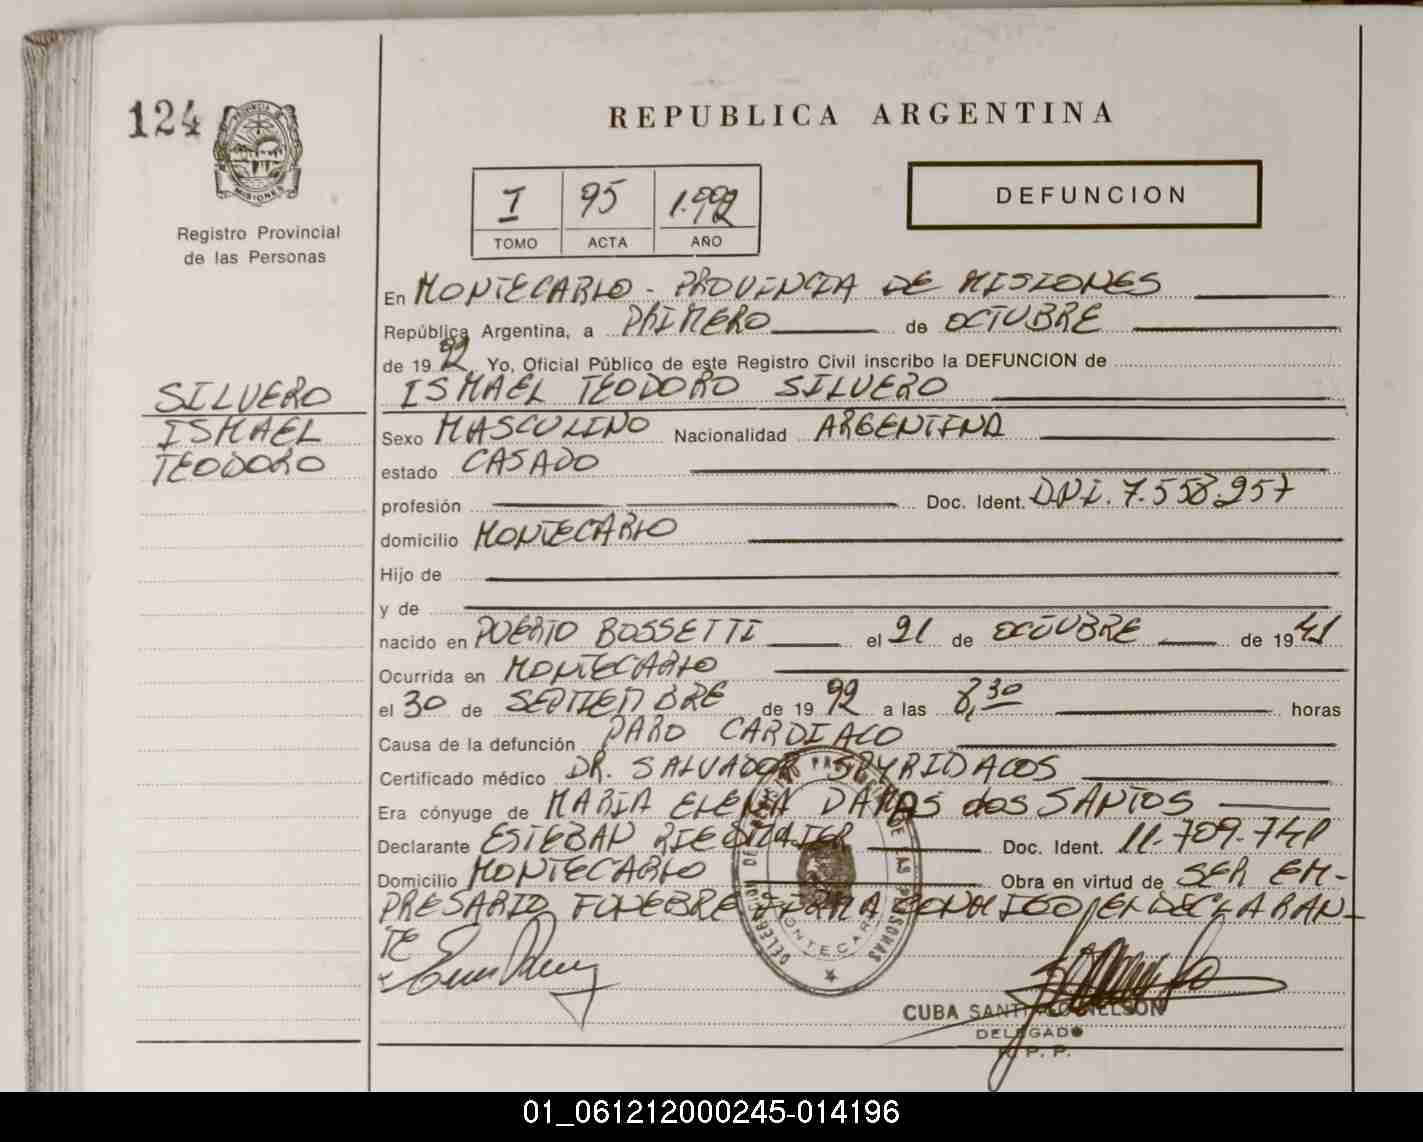 124
PROVINCIA DE
MISIONES
Registro Provincial
de las Personas
REPUBLICA ARGENTINA
I 95 1.992
TOMO ACTA AÑO
DEFUNCION
SILVERO
ISMAEL
TEODORO
En MONTECARLO - PROVINCIA DE MISIONES
República Argentina, a PRIMERO de OCTUBRE
de 1992 Yo, Oficial Público de este Registro Civil inscribo la DEFUNCION de
ISMAEL TEODORO SILVERO
Sexo MASCULINO Nacionalidad ARGENTINA
estado CASADO
profesión Doc. Ident. DNI. 7.558.957
domicilio MONTECARLO
Hijo de
y de
nacido en PUERTO BOSSETTI el 21 de OCTUBRE de 1941
Ocurrida en MONTECARLO
el 30 de SEPTIEMBRE de 1992 a las 8,30 horas
Causa de la defunción PARO CARDIACO
Certificado médico DR. SALVADOR SPYRIDACOS
Era cónyuge de MARIA ELENA DAMAS dos SANTOS
Declarante ESTEBAN Doc. Ident. 11.709.741
Domicilio MONTECARLO Obra en virtud de SER EM-
PRESARIO FUNEBRE FIRMA CONMIGO EL DECLARAN-
TE
DELEGACION DEL REGISTRO PROVINCIAL DE LAS PERSONAS
MONTECARLO
CUBA SANTIAGO NELSON
DELEGADO
R. P. P.
01_061212000245-014196